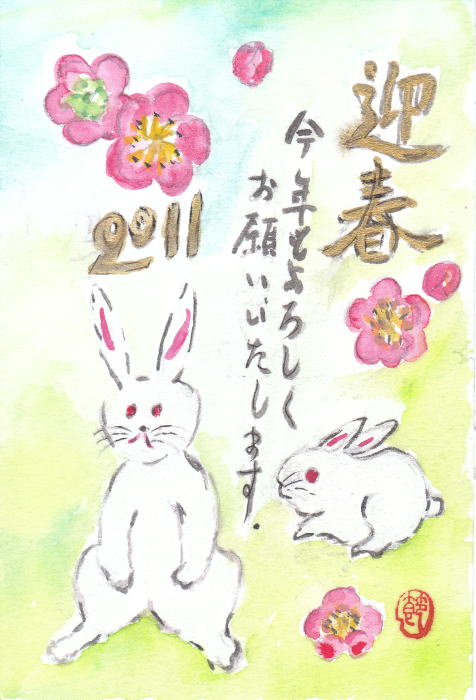 迎春
今年もよろしく
お願いいたします.
2011